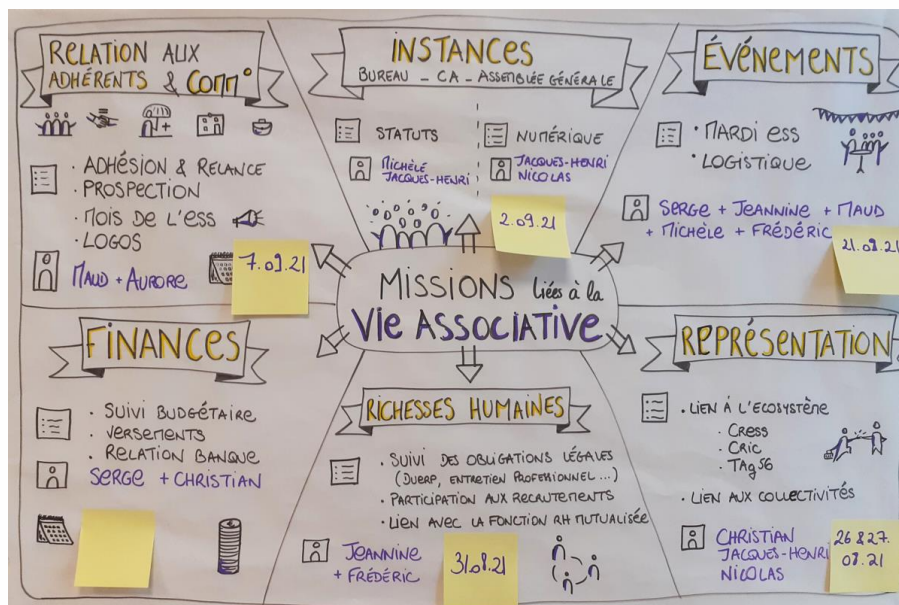 RELATION AUX
ADHÉRENTS & COMM°
· ADHÉSION & RELANCE
· PROSPECTION
· MOIS DE L'ESS
· LOGOS
MAUD + AURORE
7.09.21
INSTANCES
BUREAU _ CA _ ASSEMBLÉE GÉNÉRALE
STATUTS
MICHÈLE
JACQUES-HENRI
NUMÉRIQUE
JACQUES-HENRI
NICOLAS
2.09.21
ÉVÉNEMENTS
· MARDI ESS
· LOGISTIQUE
SERGE + JEANNINE + MAUD
+ MICHÈLE + FRÉDÉRIC
21.09.21
MISSIONS LIÉES À LA
VIE ASSOCIATIVE
FINANCES
· SUIVI BUDGÉTAIRE
· VERSEMENTS
· RELATION BANQUE
SERGE + CHRISTIAN
RICHESSES HUMAINES
· SUIVI DES OBLIGATIONS LÉGALES
(DUERP, ENTRETIEN PROFESSIONNEL ...)
· PARTICIPATION AUX RECRUTEMENTS
· LIEN AVEC LA FONCTION RH MUTUALISÉE
JEANNINE
+ FRÉDÉRIC
31.08.21
REPRÉSENTATION
· LIEN À L'ECOSYSTÈME
· CRESS
· CRIC
· TAG56
· LIEN AUX COLLECTIVITÉS
CHRISTIAN
JACQUES-HENRI
NICOLAS
26 & 27.
08.21